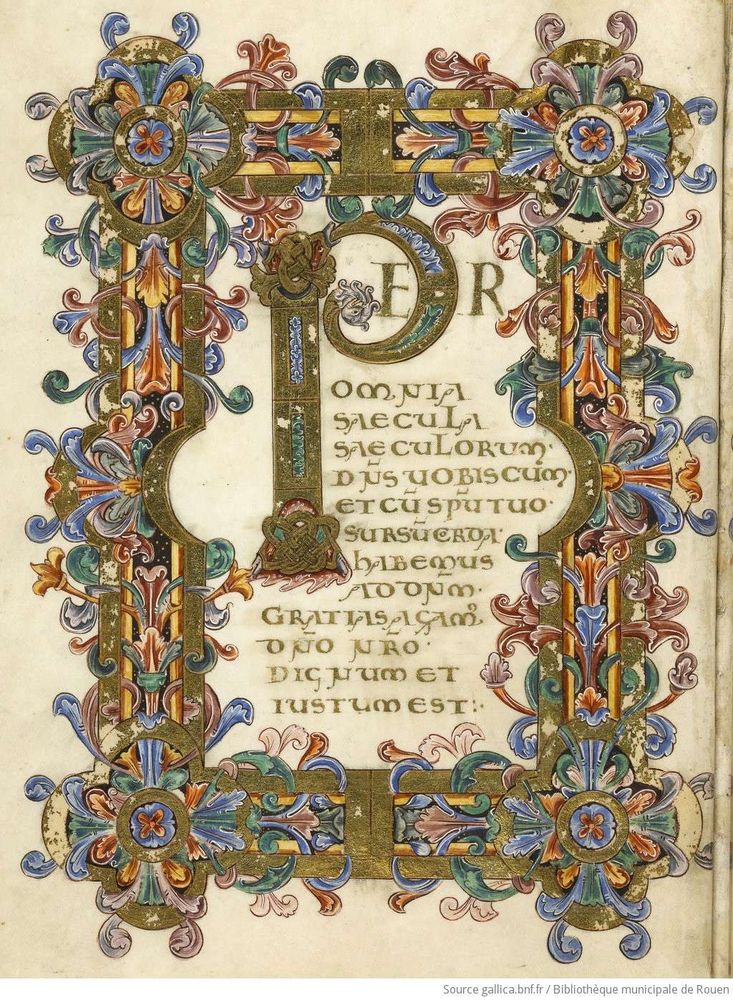 PER
OMNIA
SAECULA
SAECULORUM·
DN̄S UOBISCUM·
ET CŪ SPŪ TUO·
SURSŪ CORDA·
HABEMUS
AD DN̄M·
GRATIAS AGAM᾽
DN̄O NR̄O·
DIGNUM ET
IUSTUM EST:·
Source gallica.bnf.fr / Bibliothèque municipale de Rouen